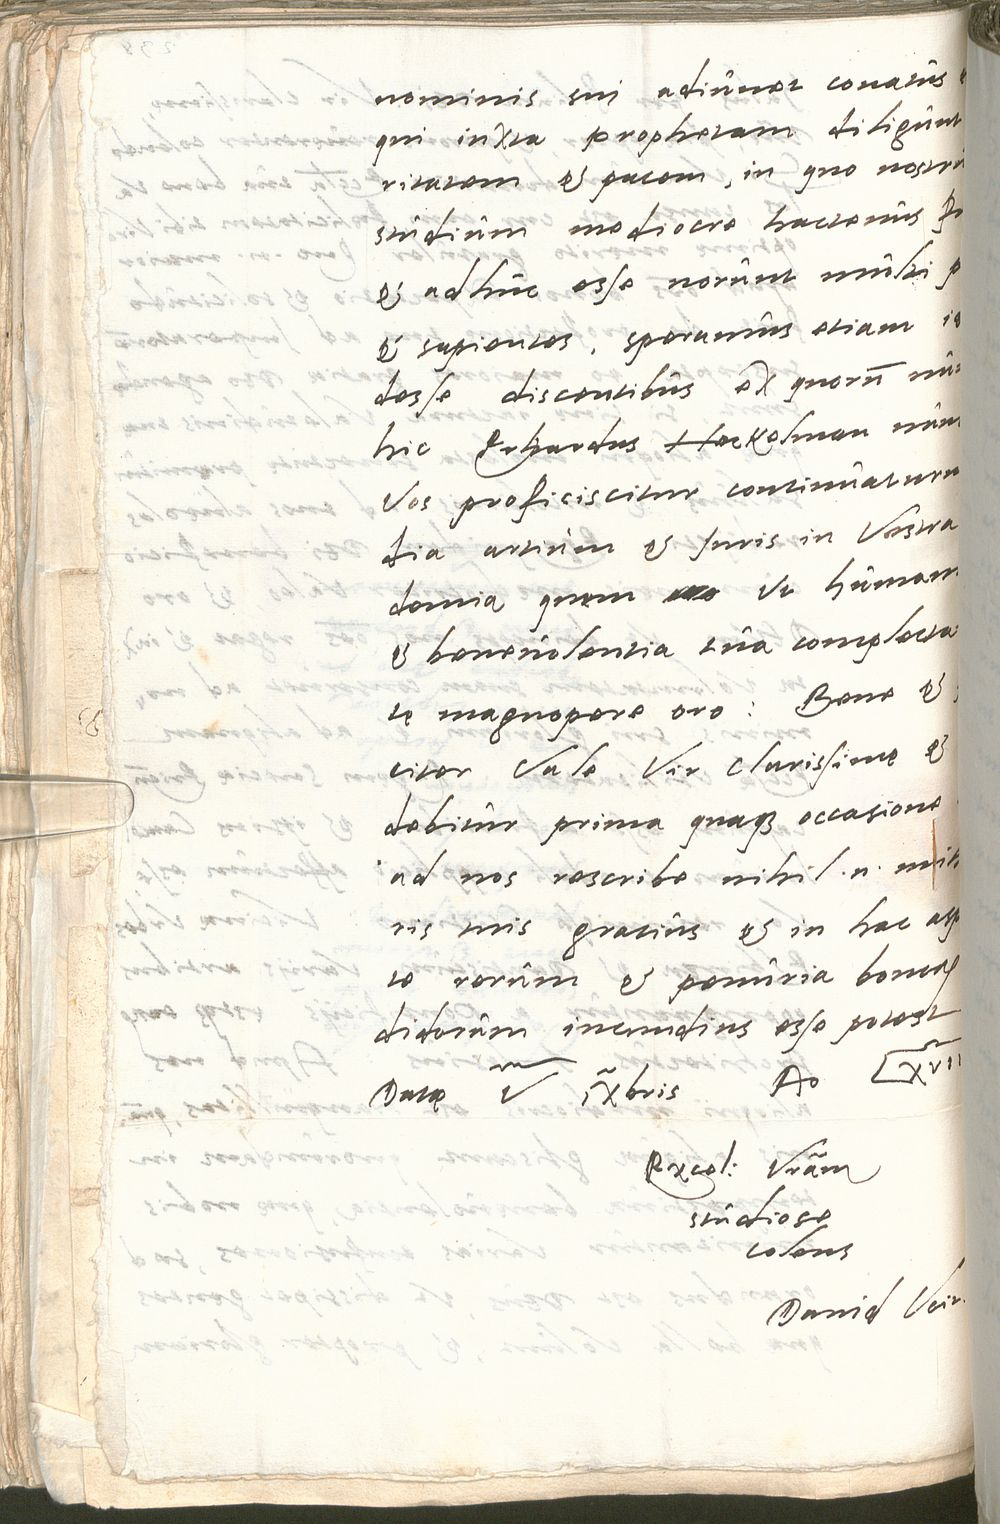 nominis sui adiûvet conatûs
qui iuxta prophetam diligûnt
ritatem & pacem, in quo nostrû
stûdiûm mediocre hactenûs
& adhûc esse norûnt mûlti p
& sapientes, speramûs etiam
desse discentibûs ex quorū
hic Erhardus Heckelman nûn
Vos proficiscitur continûaturu
dia artiûm & Juris in Vestra
demia quem Vt hûman
& benevolentia tûa complecta
te magnopere oro: Bene &
citer Vale Vir Clarissime &
debitûr prima quaqꝫ occasione
ad nos rescribe nihil .n.
ris tuis gratiûs & in hac asp
te rerûm & penûria bona
didorûm iucundius esse potest
Datę V iXbris Ao LXVII
Excel: Vrām
stûdiose
colens
Dauid Veir